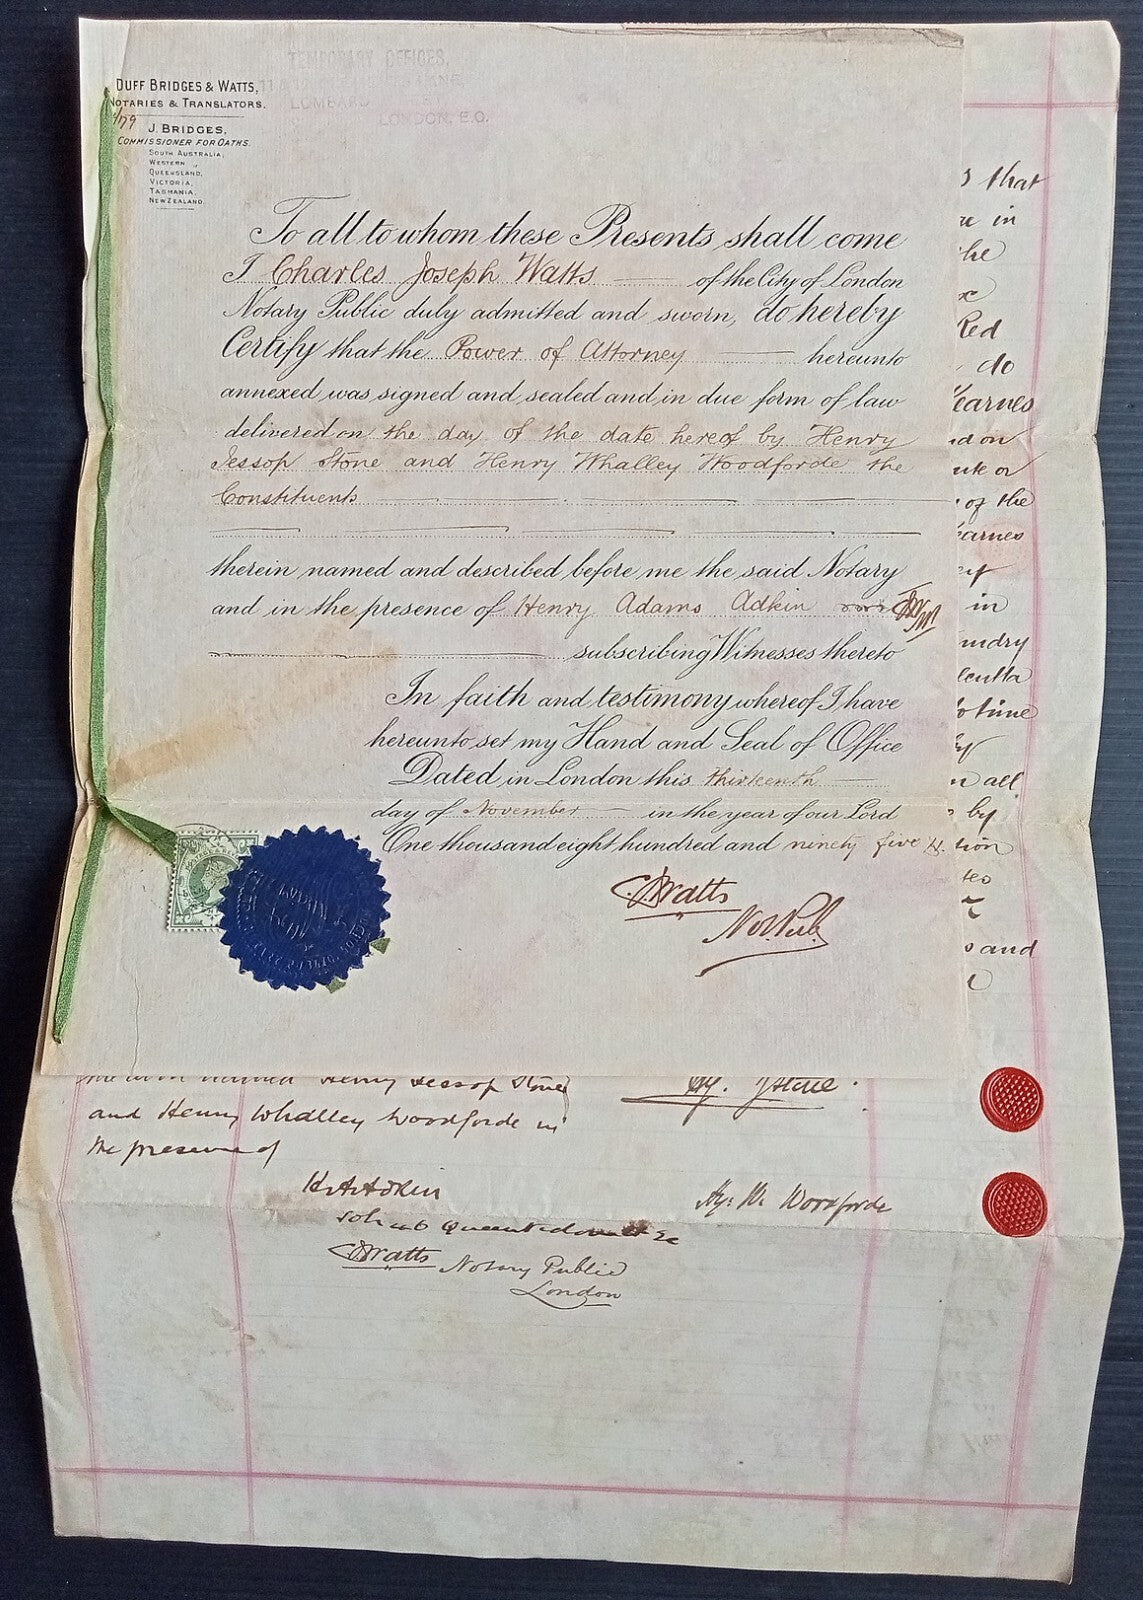 TEMPORARY OFFICES,
LOMBARD
LONDON, E.C.
DUFF BRIDGES & WATTS,
NOTARIES & TRANSLATORS.
J. BRIDGES,
COMMISSIONER FOR OATHS.
SOUTH AUSTRALIA,
WESTERN „
QUEENSLAND,
VICTORIA,
TASMANIA,
NEW ZEALAND.
To all to whom these Presents shall come
I Charles Joseph Watts of the City of London
Notary Public duly admitted and sworn, do hereby
Certify that the Power of Attorney hereunto
annexed was signed and sealed and in due form of law
delivered on the day of the date hereof by Henry
Jessop Stone and Henry Whalley Woodforde the
Constituents
therein named and described before me the said Notary
and in the presence of Henry Adams Adkin
subscribing Witnesses thereto
In faith and testimony whereof I have
hereunto set my Hand and Seal of Office
Dated in London this thirteenth
day of November in the year of our Lord
One thousand eight hundred and ninety five
CJWatts
Not. Pub.
that
in
the
Red
do
earnes
and on
or
of the
earnes
in
undry
lcutta
time
by
all
by
tion
and
named Henry Jessop Stone
and Henry Whalley Woodforde in
the presence of
Hy. J Stone
H A Adkin
Hy: W. Woodforde
CJWatts Notary Public
London